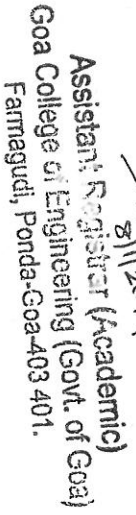 Assistant Registrar (Academic)
Goa College of Engineering (Govt. of Goa)
Farmagudi, Ponda-Goa-403 401.